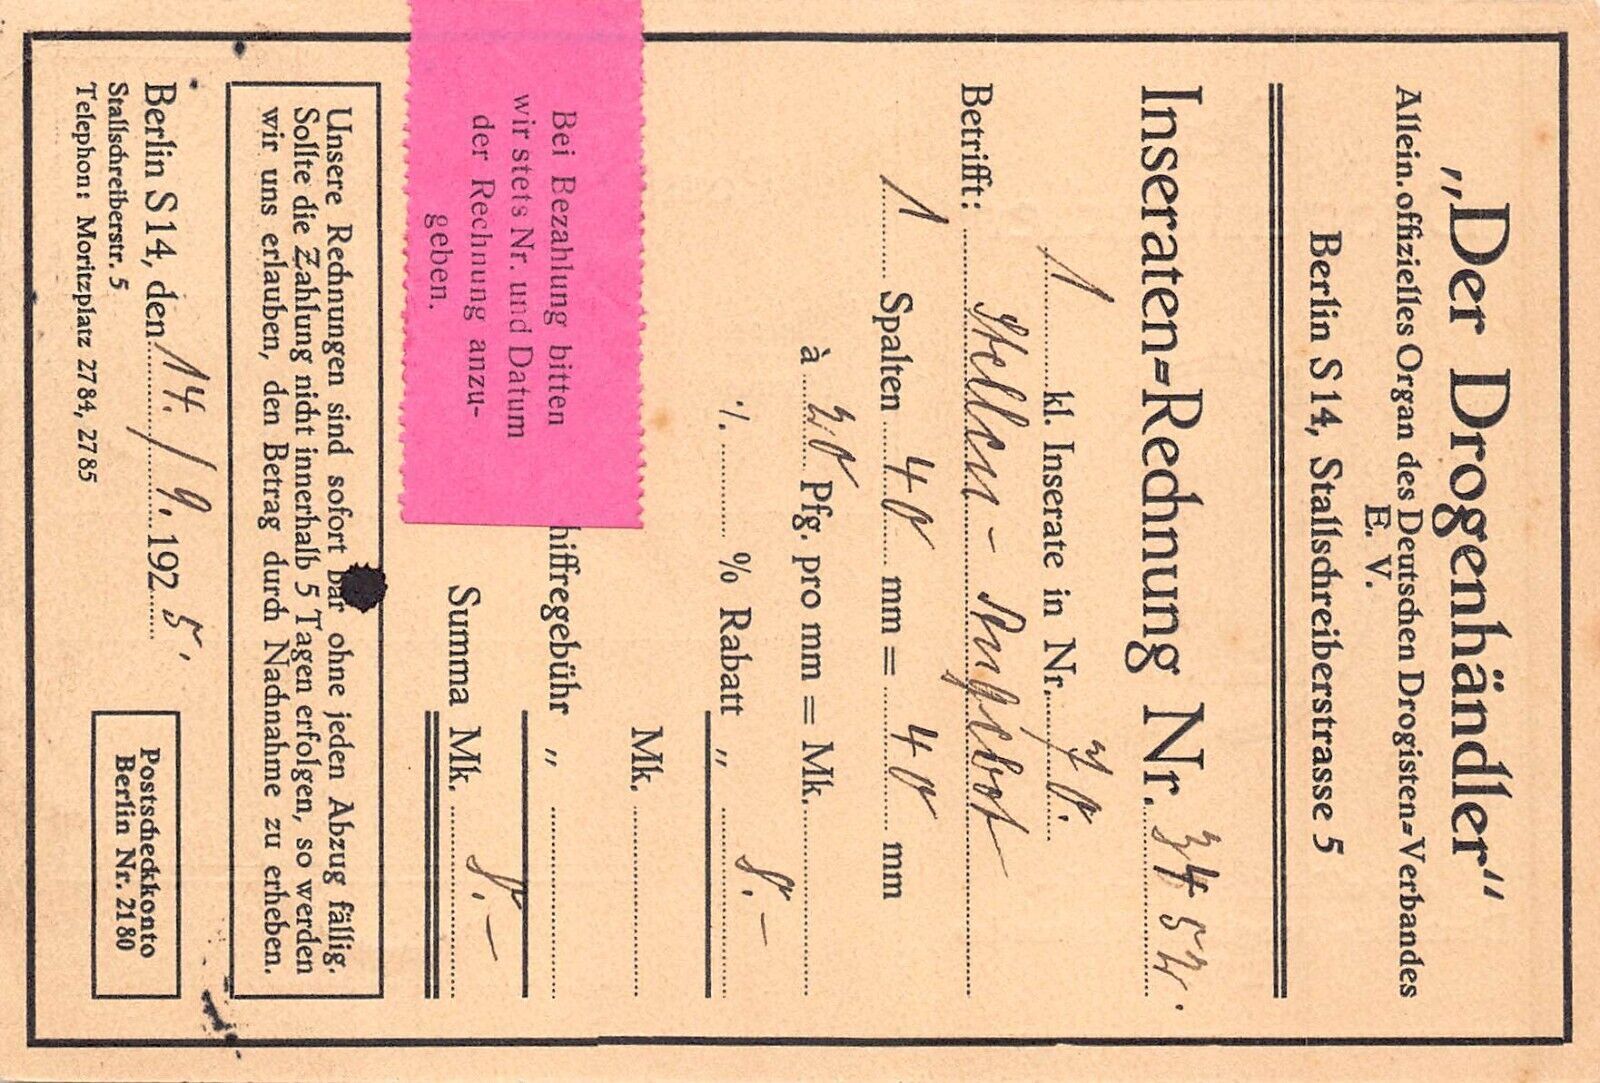 „Der Drogenhändler“
Allein. offizielles Organ des Deutschen Drogisten-Verbandes
E. V.
Berlin S 14, Stallschreiberstrasse 5
Inseraten-Rechnung Nr. 3452.
1 kl. Inserate in Nr. 70.
Betrifft: Stellen-Angebot
1 Spalten 40 mm = 40 mm
à 20 Pfg. pro mm = Mk.
·/. % Rabatt „ 8.–
Mk.
hiffregebühr „
Summa Mk. 8.–
Bei Bezahlung bitten
wir stets Nr. und Datum
der Rechnung anzu-
geben.
Unsere Rechnungen sind sofort bar ohne jeden Abzug fällig.
Sollte die Zahlung nicht innerhalb 5 Tagen erfolgen, so werden
wir uns erlauben, den Betrag durch Nachnahme zu erheben.
Berlin S 14, den 14./9. 1925.
Stallschreiberstr. 5
Telephon: Moritzplatz 2784, 2785
Postscheckkonto
Berlin Nr. 2180